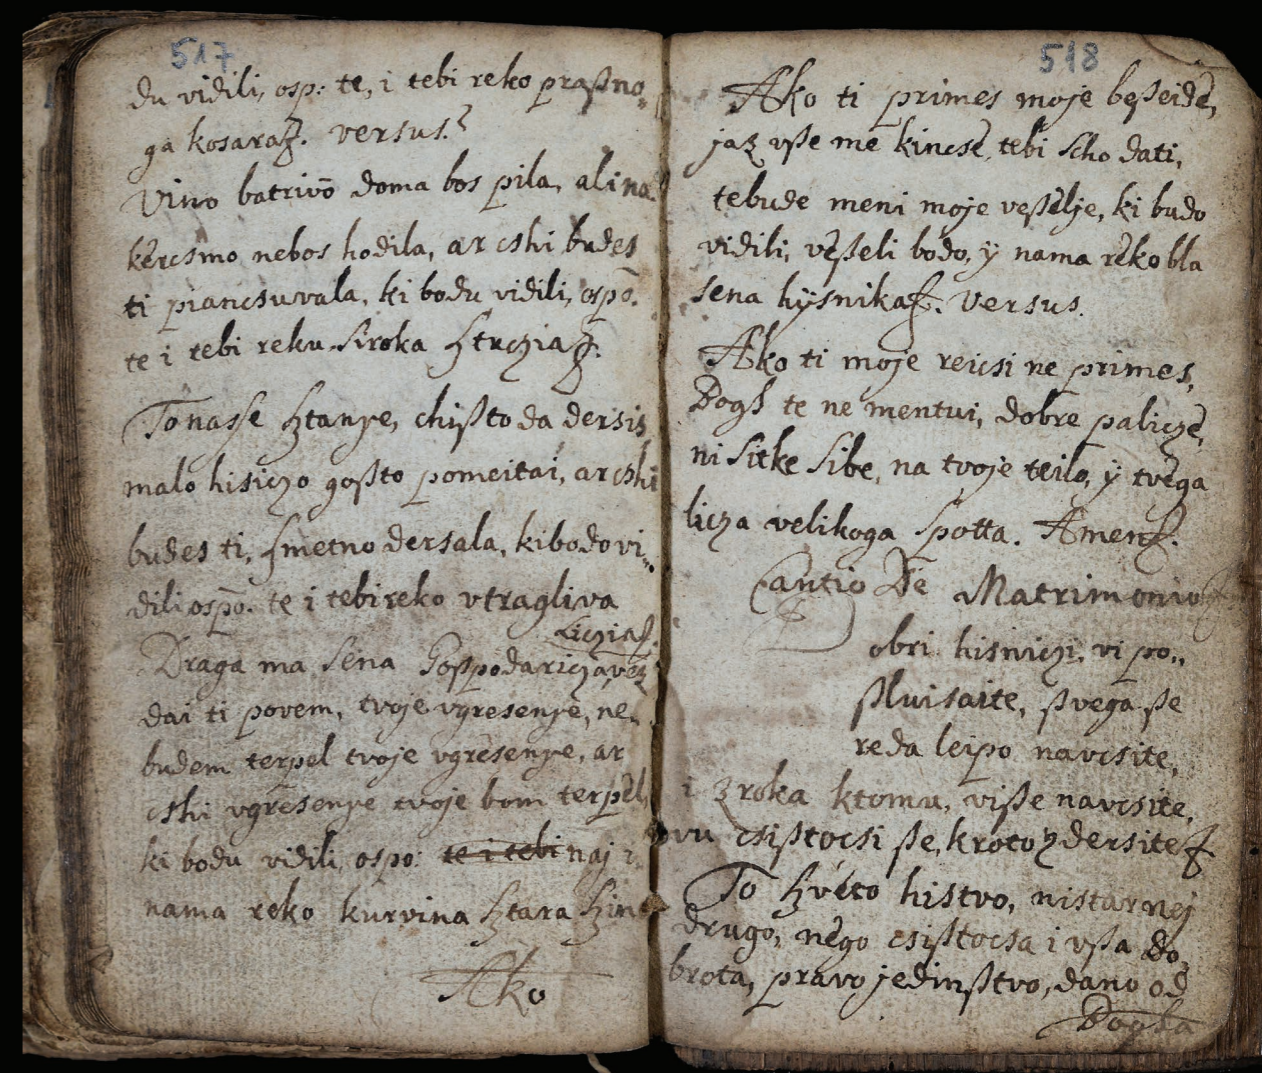 517
du vidili, osp: te, i tebi reko praßno„
ga kosaraʃ. versus.
Vino batrivō doma bos pila, ali na
kèrcsmo nebos hodila, ar cshi budes
ti piancsuvala, ki bodu vidili, ospō.
te i tebi reku siroka ſtuczia
To nasſe sztanye, chißto da dersis
malo hisiczo goßto pometai, ar cshi
budes ti, ſmetno dersala, ki bodo vi„
dili ospō. te i tebi reko vtragliva
Liczia
Draga ma sena Goßpodaricza, vèz
dai ti povem, tvoje vgresenye, ne„
budem terpel tvoje vgrèsenye, ar
cshi vgrèsenye tvoje bom terpèl,
ki bodu vidili, ospo: te i tebi naj i
nama reko kurvina sztara
Ako
518
Ako ti primes moje beßeidè,
jaz vße me kincsè, tebi scho dati,
te bude meni moje veßèlje, ki budo
vidili, vèßeli bodo, ÿ nama rèko bla
sena hÿsnika. Versus.
Ako ti moje reicsi ne primes,
Bogs te ne mentui, dobre paliczè,
ni sitke sibe, na tvoje teilo, ÿ tvèga
licza velikoga spotta. Amen.
Cantio De Matrimonio
obri hisniczi, vi po„
ßluisaite, ßvega ße
reda leipo navcsite,
i zroka ktomu, viße navcsite,
vu csißtocsi ße, kroto zdersite
To szvéto histvo, nistar nej
drugo, nègo csißtocsa i vßa do„
brota, pravo jedinßtvo, dano od
Bogha